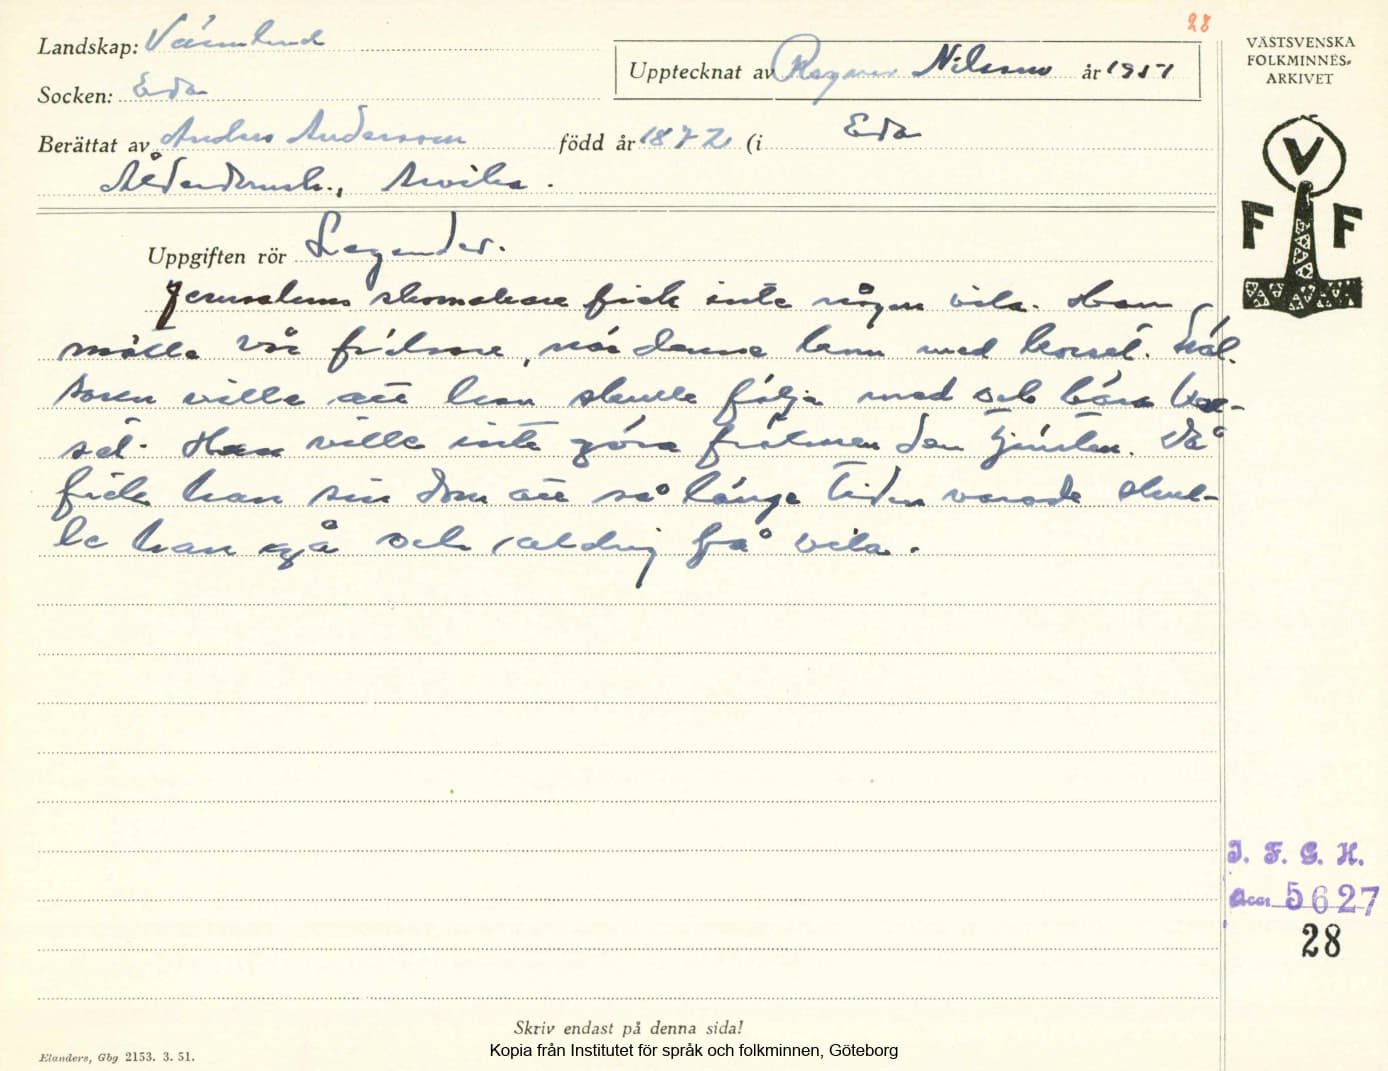 28
Landskap: Värmland
Upptecknat av Ragnar Nilsson år 1951
Socken: Eda
Berättat av Anders Andersson född år 1872 (i Eda
Ålderdomsh., Arvika.
VÄSTSVENSKA
FOLKMINNES-
ARKIVET
V
F F
Uppgiften rör Legender.
Jerusalems skomakare fick inte någon vila. Han
mötte vår frälsare, när denne kom med korset. Fräl-
saren ville att han skulle följa med och bära kor-
set. Han ville inte göra frälsaren den tjänsten. Då
fick han sin dom att så länge tiden varade skul-
le han gå och aldrig få vila.
I. F. G. H.
Acc. 5627
28
Skriv endast på denna sida!
Elanders, Gbg 2153. 3. 51.
Kopia från Institutet för språk och folkminnen, Göteborg